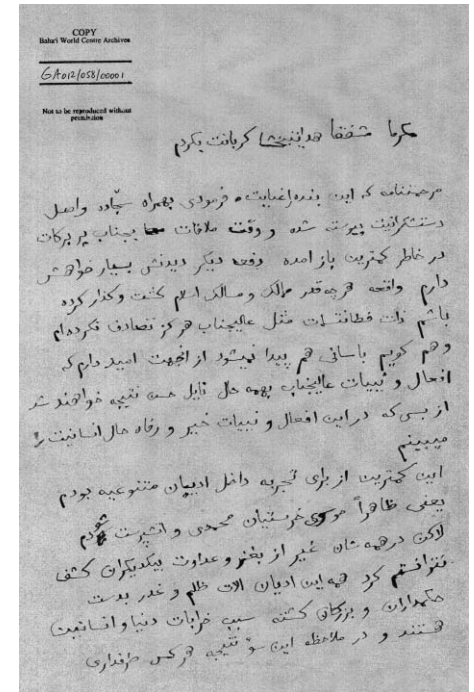 COPY
Bahá'í World Centre Archives
GA012/058/00001
Not to be reproduced without
permission
مکرما مشفقا هدایتبخشا کربانت بکردم
مرحمتنامه که این بنده را عنایت فرمودی بهمراه سجاده واصل
دست شده و وقت ملاقات بجناب پر برکات
در خاطر کمترین باز امده دفعه دیکر دیدنش بسیار خواهش
دارم واقعه هر چه قدر ممالک و مسالک اسلام کشت و کذار کرده
باشم ذات مثل عالیجناب هرکز تصادف نکرده‌ام
وهم کویم باسانی هم پیدا نمیشود از انجهت امید دارم که
افعال و نیبات عالیجناب بهمه حال نایل حسن نتیجه خواهند شد
از بسی که در این افعال و نیبات خیر و رفاه حال انسانیت را
میبینم
این کمترین از برای تجربه داخل ادیان متنوعیه بودم
یعنی ظاهراً موسوی خرستیان محمدی و شدم
لاکن در همه شان غیر از بغض و عداوت یکدیکران کشف
نتوانستم کرد همه این ادیان الات ظلم و غدر بدست
حکمداران و بزرکان کشته سبب خرابات دنیا و انسانیت
هستند و در ملاحظه این سوء نتیجه هر کس طرفداری